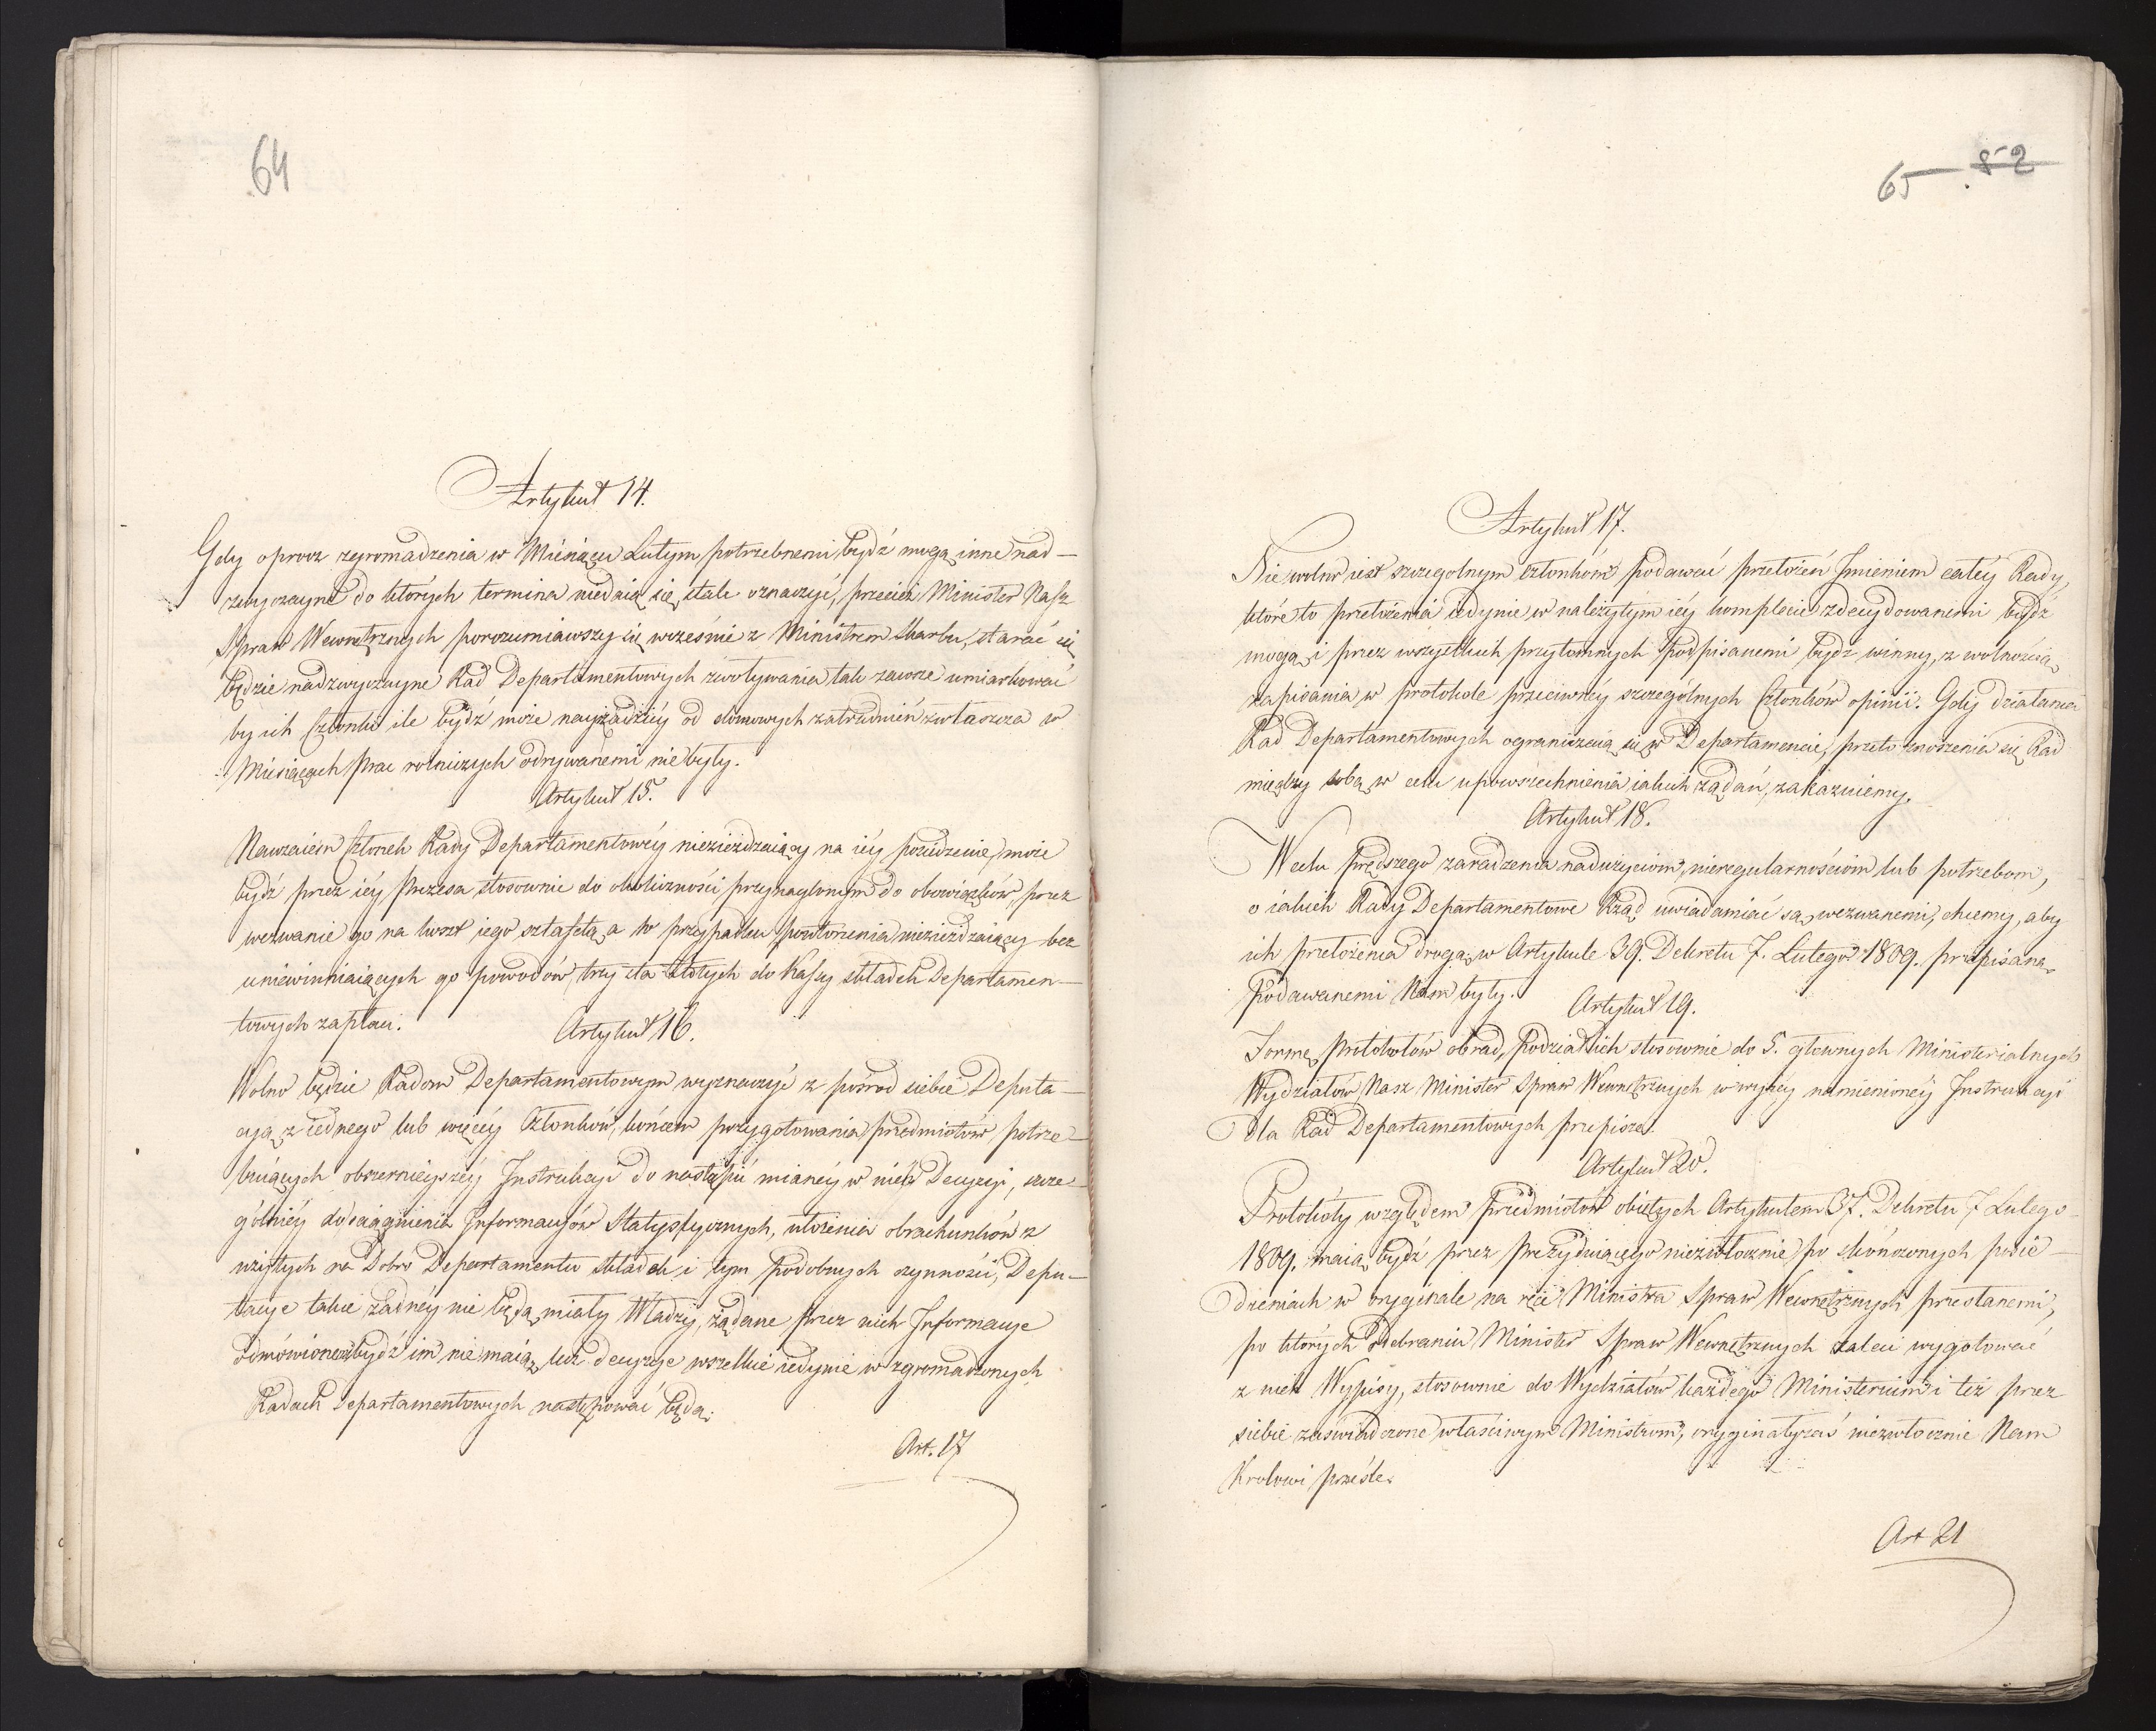 64
Artykuł 14.
Gdy oprocz zgromadzenia w Miesiącu Lutym potrzebnemi bydź mogą inne nad-
zwyczayne do których termina niedaią się stale oznaczyć, przecież Minister Nasz
Spraw Wewnętrznych porozumiawszy się wcześnie z Ministrem Skarbu, starać się
będzie nadzwyczayne Rad Departamentowych zwoływania tak zawsze umiarkować
by ich Członki ile bydź może nayrzadziéy od domowych zatrudnień zwłaszcza w
Miesiącach prac rolniczych odrywanemi nie były.
Artykuł 15.
Nawzaiem Członek Rady Departamentowéy niezieżdzaiący na iéy posiedzenie, może
bydź przez iéy Prezesa stosownie do okoliczności przynaglonym do obowiązków, przez
wezwanie go na koszt iego sztafetą, a w przypadku powtorzenia niezieżdzaiący bez
uniewinniaiących go powodów, trzy sta złotych do Kassy składek Departamen-
towych zapłaci.
Artykuł 16.
Wolno będzie Radom Departamentowym wyznaczyć z pośrod siebie Deputa-
cyą z iednego lub więcéy Członków, końcem przygotowania przedmiotów, potrze-
buiących obszernieyszéy Instrukcyi do nastąpić mianéy w nich Decyzyi, szcze-
gólniéy do ściągnienia Informacyów Statystycznych, ułożenia obrachunków z
wziętych na Dobro Departamentu składek i tym podobnych czynności, Depu-
tacye takie żadnéy nie będą miały Władzy, żądane przez nich Informacye
odmówione bydź im nie maią, lecz decyzye wszelkie iedynie w zgromadzonych
Radach Departamentowych następować będą.
Art. 17
65 52
Artykuł 17.
Nie wolno iest szczegolnym członkóm podawać przełożeń Imieniem całéy Rady,
które to przełożenia iedynie w należytym iéy komplecie zdecydowanemi bydź
mogą, i przez wszystkich przytomnych podpisanemi bydź winny, z wolnością
zapisania w protokole przeciwnéy szczególnych Członków opinii. Gdy działania
Rad Departamentowych ograniczaią się w Departamencie, przeto znoszenia się Rad
między sobą, w celu upowszechnienia iakich żądań, zakazuiemy.
Artykuł 18.
W celu prędszego zaradzenia nadużyciom, nieregularnościom lub potrzebom,
o iakich Rady Departamentowe Rząd uwiadamiać są wezwanemi, chcemy, aby
ich przełożenia drogą, w Artykule 39. Dekretu 7. Lutego 1809. przepisaną
podawanemi Nam były.
Artykuł 19.
Formę Protokołów obrad, Podział ich stosownie do 5. głownych Ministerialnych
Wydziałów, Nasz Minister Spraw Wewnętrznych w wyżéy namienionéy Instrukcyi
dla Rad Departamentowych przepisze.
Artykuł 20.
Protokóły względem przedmiotów obiętych Artykułem 37. Dekretu 7 Lutego
1809. maią bydź przez prezyduiącego niezwłocznie, po skończonych posie-
dzeniach w oryginale na ręce Ministra Spraw Wewnętrznych przesłanemi,
po których odebraniu Minister Spraw Wewnętrznych zaleci wygotować
z nich Wypisy, stosownie do Wydziałów każdego Ministerium i też przez
siebie zaświadczone właściwym Ministrom, oryginały zaś niezwłocznie Nam
Krolowi prześle.
Art 21